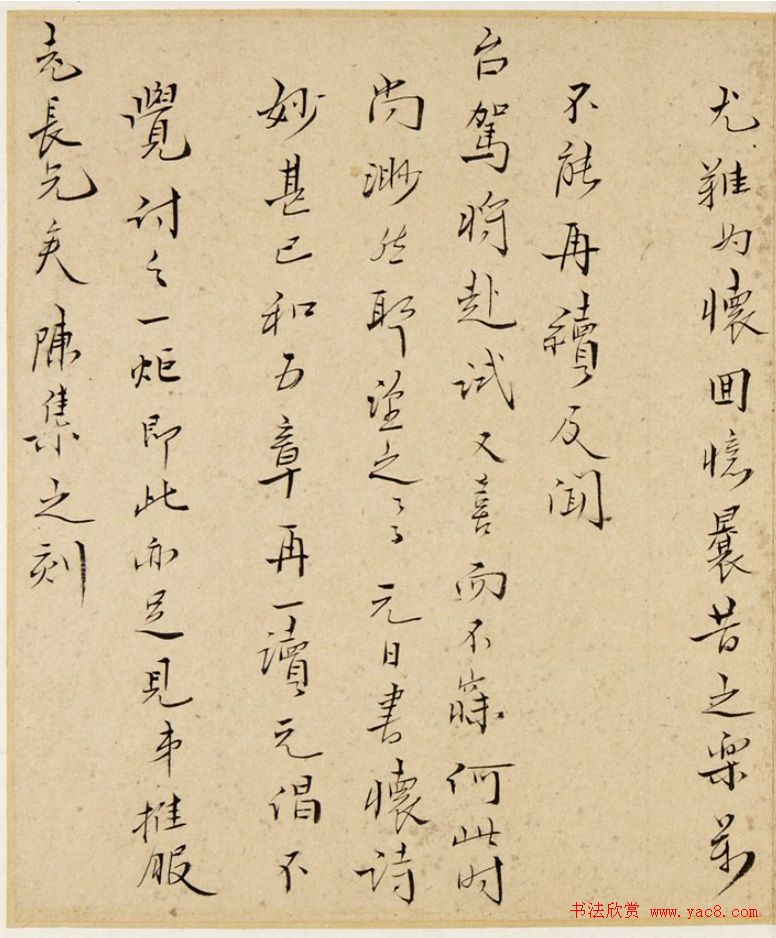 尤難為懷回憶曩昔之樂萬
不能再續及聞
台駕將赴試又喜而不寐何此时
尚渺然耶望之元日書懷詩
妙甚已和五章再一讀元倡不
覺討之一炬即此亦足見弟推服
老長兄矣陳集之刻
书法欣赏 www.yac8.com